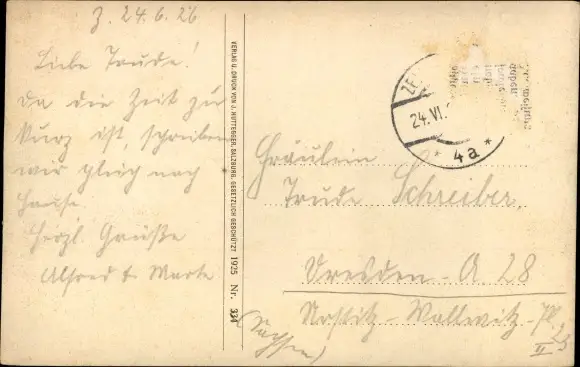 Z. 24.6.26
Liebe Trude!
Da die Zeit zu
kurz ist, schreiben
wir gleich nach
Hause.
Herzl. Grüße
Alfred &
VERLAG U. DRUCK VON J. HUTTEGGER, SALZBURG. GESETZLICH GESCHÜTZT 1925 Nr. 334
24.VI.
* 4a *
Fräulein
Trude Schreiber,
Dresden-A 28
Nostitz-Wallwitz-Pl.
II
(Sachsen)